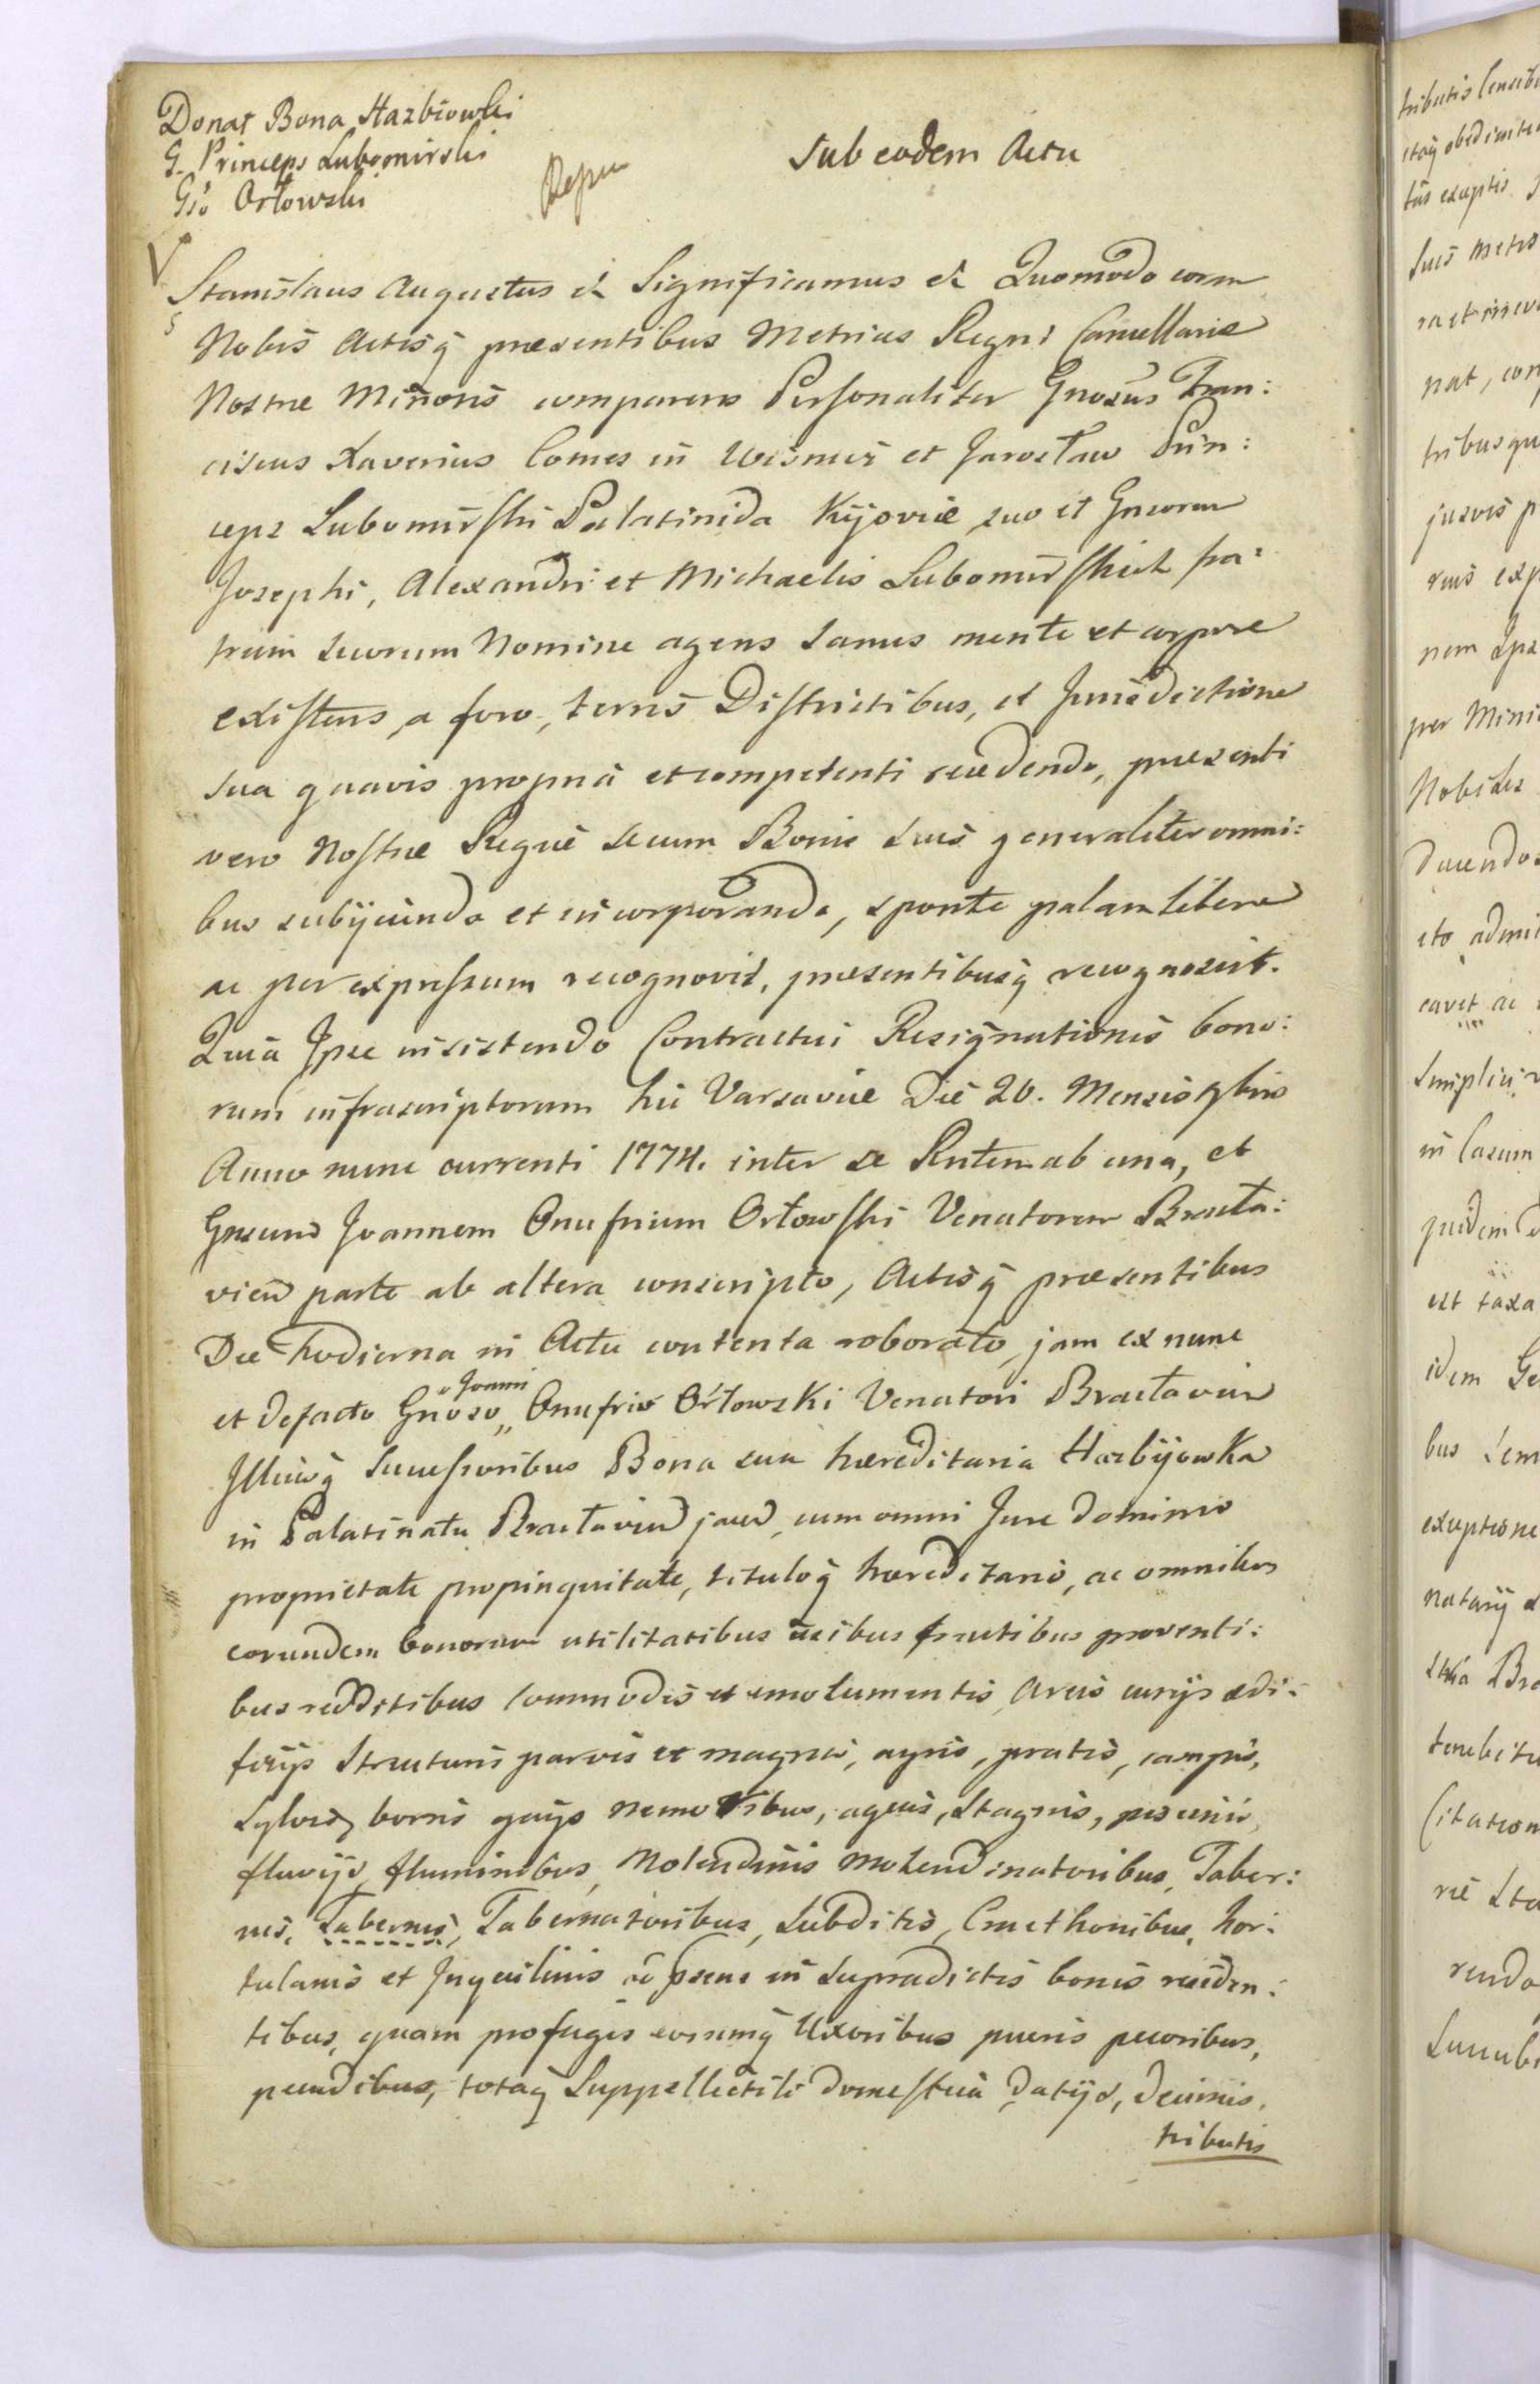 Donat Bona Hazbiowki
G. Princeps Lubomirski
Gso Orłowski
Sub eodem Actu
Stanislaus Augustus et Significamus et Quomodo coram
Nobis Actisq presentibus Metrices Regni Cancellariæ
Nostræ Minoris comparens Personaliter Gnosus Fran:
ciscus Xaverius Comes in Wisnicz et Jarosław Prin:
ceps Lubomirski Palatinida Kijoviæ suo et Gnsorum
Josephi, Alexandri et Michaelis Lubomirskich fra:
trum suorum Nomine agens sanus mente et corpore
existens, a foro, terris Districtibus, et Jurisdictione
sua quavis propria et competenti recedendo, præsenti
vero Nostræ Regiæ secum Bonis suis generaliter omni:
bus subijciendo et incorporando, sponte palam libere
ac per expressum recognovit, præsentibusq recognoscit.
Quia Ipse insistendo Contractui Resignationis bono:
rum infrascriptorum hic Varsaviæ Die 20. Mensis 9bris
Anno nunc currenti 1774. inter se Rntem ab una, et
Gnsum Joannem Onufrium Orłowski Venatorem Bracła:
vien parte ab altera conscripto, Actisq præsentibus
Die hodierna in Actu contenta roborato, jam ex nunc
et defacto Gnoso „ Joanni „ Onufrio Orłowski Venatori Bracłavien
Illiusq Successoribus Bona sua hæreditaria Hazbijowka
in Palatinatu Bracłavien jacen, cum omni Jure dominio
proprietate propinquitate, tituloq hæreditario, ac omnibus
eorundem bonorum utilitatibus usibus fructibus proventi:
bus redditibus commodis et emolumentis, areis curijs ædi:
ficijs Structuris parvis et magnis, agris, pratis, campis,
Sylvis, borris gaijs nemoribus, aquis, Stagnis, piscinis,
fluvijs, fluminibus, Molendinis molendinatoribus, Taber:
nis, Tabernis, Tabernatoribus, Subditis, Cmethonibus, hor:
tulanis et Inquilinis ad præns in supradictis bonis residen:
tibus, quam profugis eorumq Uxoribus pueris pecoribus,
pecudibus, totaq Suppellectili domestica datijs, decimis,
tributis